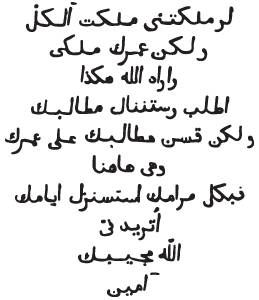 لو ملكتني ملكت الكل
ولكن عمرك ملكي
واراه الله هكذا
اطلب وستنال مطالبك
ولكن قسن مطالبك على عمرك
وهي هاهنا
فبكل مرامك استسنزل ايامك
أتريدني
الله مجيبك
آمين